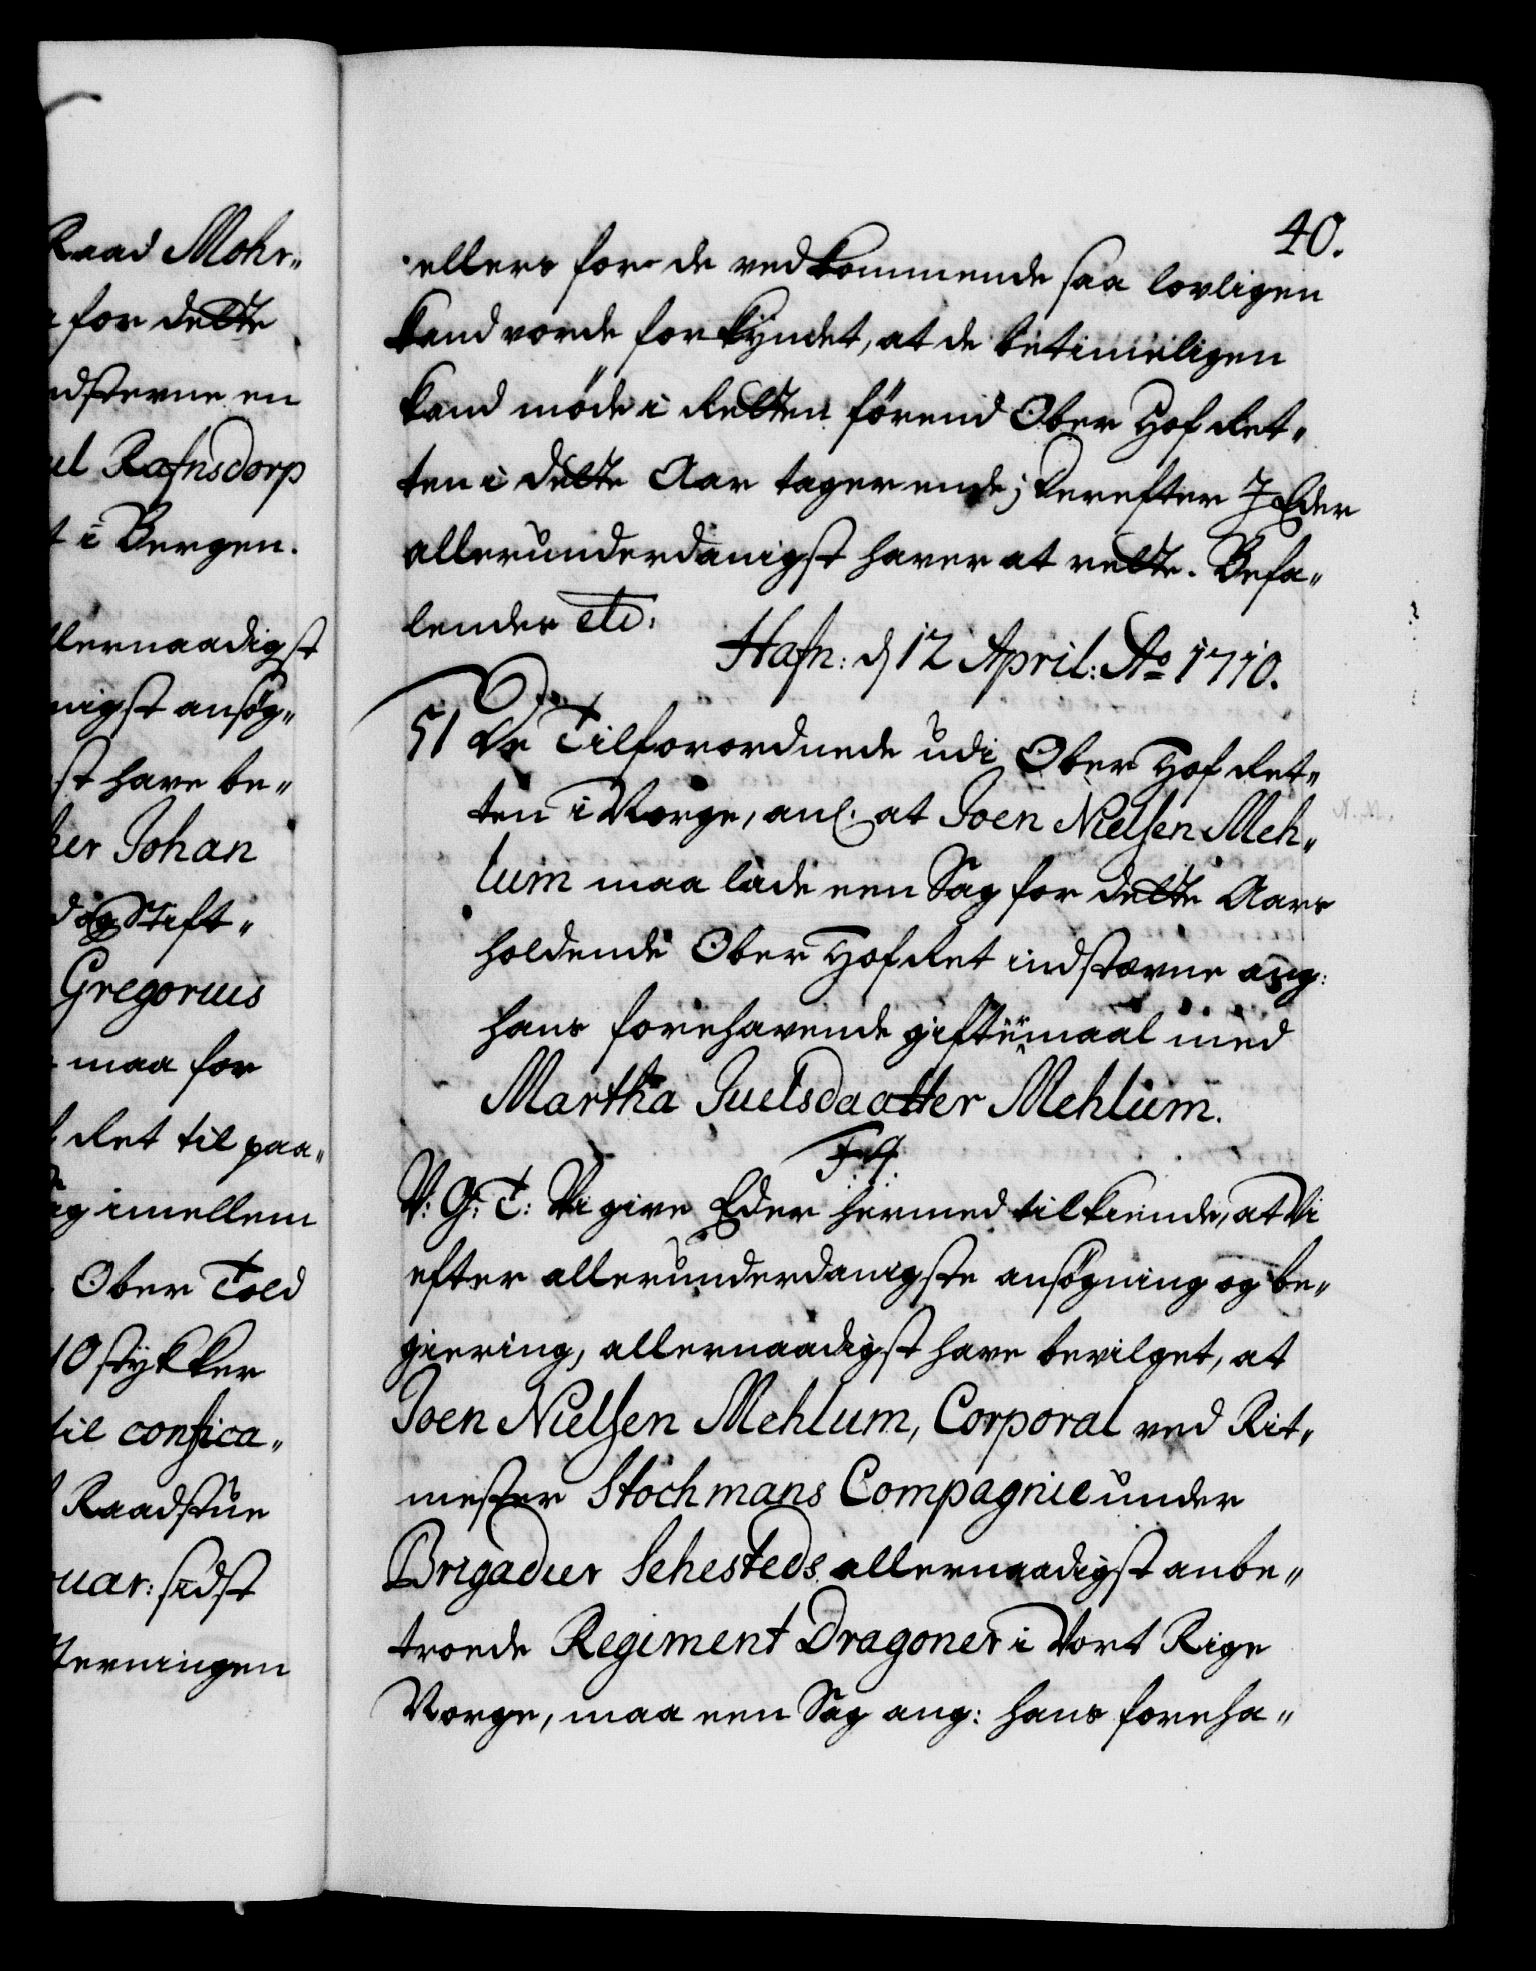 Raad Mohr„
for dette
ndsterne en
el Rafnsdorp
t i Bergen.
llernaadigst
nigst ansøg„
st have be„
ker Johan
d og Stift„
Gregorius
maa for
Ret til paa„
ag imellem
Ober Told
10 stykker
til confica„
Raadstue
uar: sidst
terningen
40.
ellers for de vedkommende saa lovligen
kand vorde forkyndet, at de betimeligen
kand møde i Retten førend Ober Hof Ret„
ten i dette Aar tager ende; Derefter I Eder
allerunderdanigst haver at rette. Befa„
lendes etc.
Hafn: d 12 April: Ao 1710.
51 De Tilforordnede udi Ober Hof Ret„
ten i Norge, anl. at Joen Nielsen Meh„
lum maa lade een Sag for dette Aars
holdende Ober Hof Ret indstævne ang:
hans forehavende giftermaal med
Martha Juelsdaatter Mehlum.
F. 4.
V: G: T: Vi give Eder hermed tilkiende, at Vi
efter allerunderdanigste ansøgning og be„
giering, allernaadigst have bevilget, at
Joen Nielsen Mehlum, Corporal ved Rit„
mester Stochmans Compagnie under
Brigadier Sehesteds allernaadigst anbe„
troede Regiment Dragoner i Vort Rige
Norge, maa een Sag ang: hans foreha„